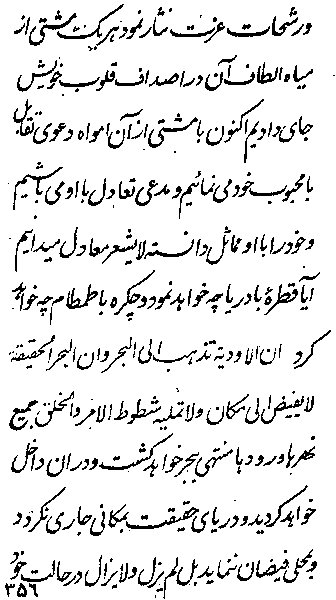 و رشحات عزت نثار نمود هر یک مشتی از
میاه الطاف آن در اصداف قلوب خویش
جای دادیم اکنون با مشتی از آن امواه دعوی تقابل
با محبوب خود می نمائیم و مدعی تعادل با او می باشیم
و خود را با او مماثل دانسته لایشعر معادل میدانیم
آیا قطرهٔ با دریا چه خواهد نمود و چکره با طمطام چه خواهد
کرد ان الاودیة تذهب الی البحر وان البحر الحقیقة
لایفیض الی مکان ولا تملیه شطوط الامر والخلق جمیع
نهرها و رودها منتهی ببحر خواهد گشت و در ان داخل
خواهد گردید و دریای حقیقت بمکانی جاری نگردد
و بمحلی فیضان ننماید بل لم یزل و لایزال در حالت خود
۳۵۶